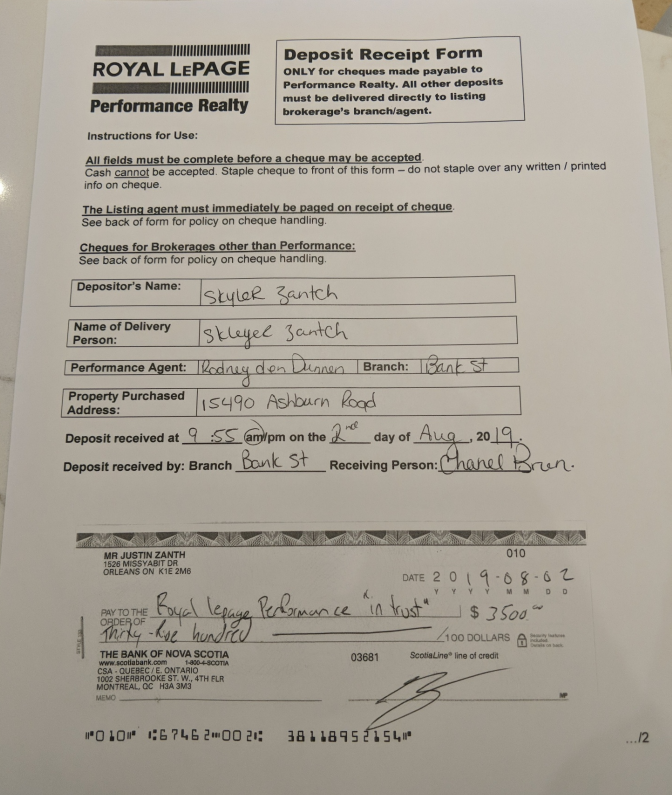 ROYAL LEPAGE
Performance Realty
Deposit Receipt Form
ONLY for cheques made payable to
Performance Realty. All other deposits
must be delivered directly to listing
brokerage's branch/agent.
Instructions for Use:
All fields must be complete before a cheque may be accepted.
Cash cannot be accepted. Staple cheque to front of this form – do not staple over any written / printed
info on cheque.
The Listing agent must immediately be paged on receipt of cheque.
See back of form for policy on cheque handling.
Cheques for Brokerages other than Performance:
See back of form for policy on cheque handling.
Depositor's Name: Skyler Zantch
Name of Delivery
Person: Skleyer Zantch
Performance Agent: Rodney den Dunnen Branch: Bank St
Property Purchased
Address: 15490 Ashburn Road
Deposit received at 9:55 am/pm on the 2nd day of Aug, 2019.
Deposit received by: Branch Bank St Receiving Person: Chanel Brun.
MR JUSTIN ZANTH
1526 MISSYABIT DR
ORLEANS ON K1E 2M6
010
DATE 2019-08-02
Y Y Y Y M M D D
PAY TO THE
ORDER OF Royal lepage Performance "in trust" $ 3500
Thirty-five hundred /100 DOLLARS
THE BANK OF NOVA SCOTIA
www.scotiabank.com 1-800-4-SCOTIA
CSA - QUEBEC / E. ONTARIO
1002 SHERBROOKE ST. W., 4TH FLR
MONTREAL, QC H3A 3M3
03681 ScotiaLine® line of credit
MEMO
MP
⑈010⑈ ⑆67462⑉002⑆ 38118952154⑈
.../2